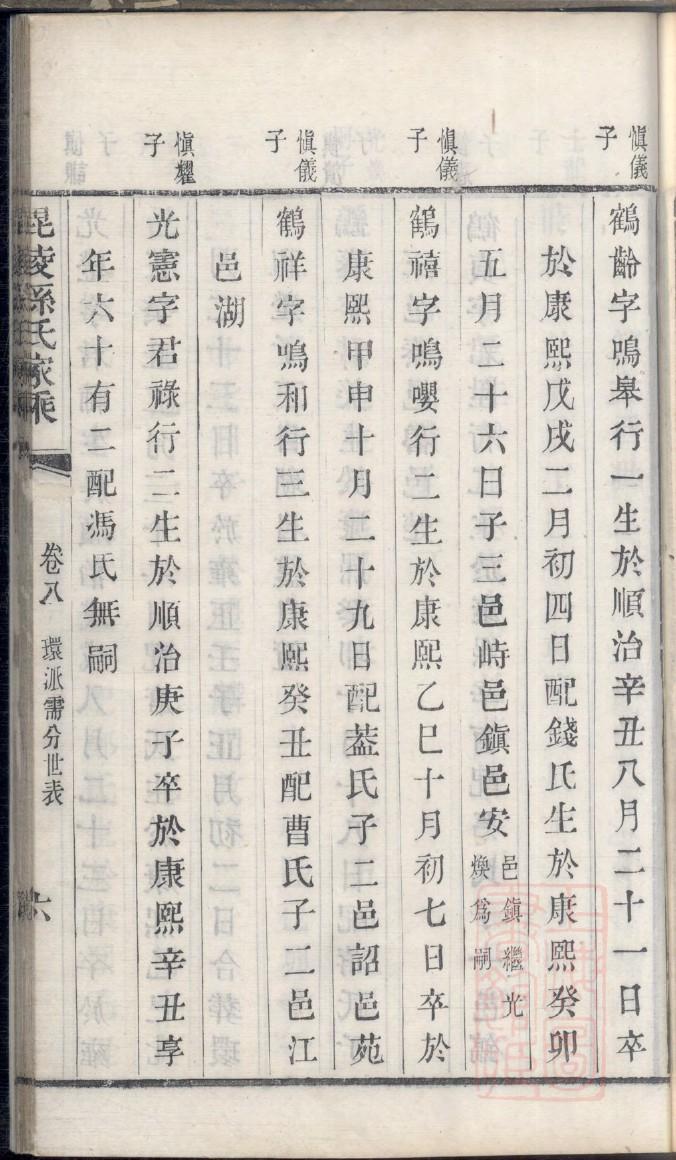 慎儀子
鶴齡字鳴皋行一生於順治辛丑八月二十一日卒
於康熙戊戌二月初四日配錢氏生於康熙癸卯
五月二十六日子三邑峙邑鎮邑安邑鎮繼光煥為嗣
慎儀子
鶴禧字鳴嚶行二生於康熙乙巳十月初七日卒於
康熙甲申十月二十九日配葢氏子二邑詔邑苑
慎儀子
鶴祥字鳴和行三生於康熙癸丑配曹氏子二邑江
邑湖
慎耀子
光憲字君祿行二生於順治庚子卒於康熙辛丑享
年六十有二配馮氏無嗣
毘陵孫氏家乘
卷八 環派需分世表
六